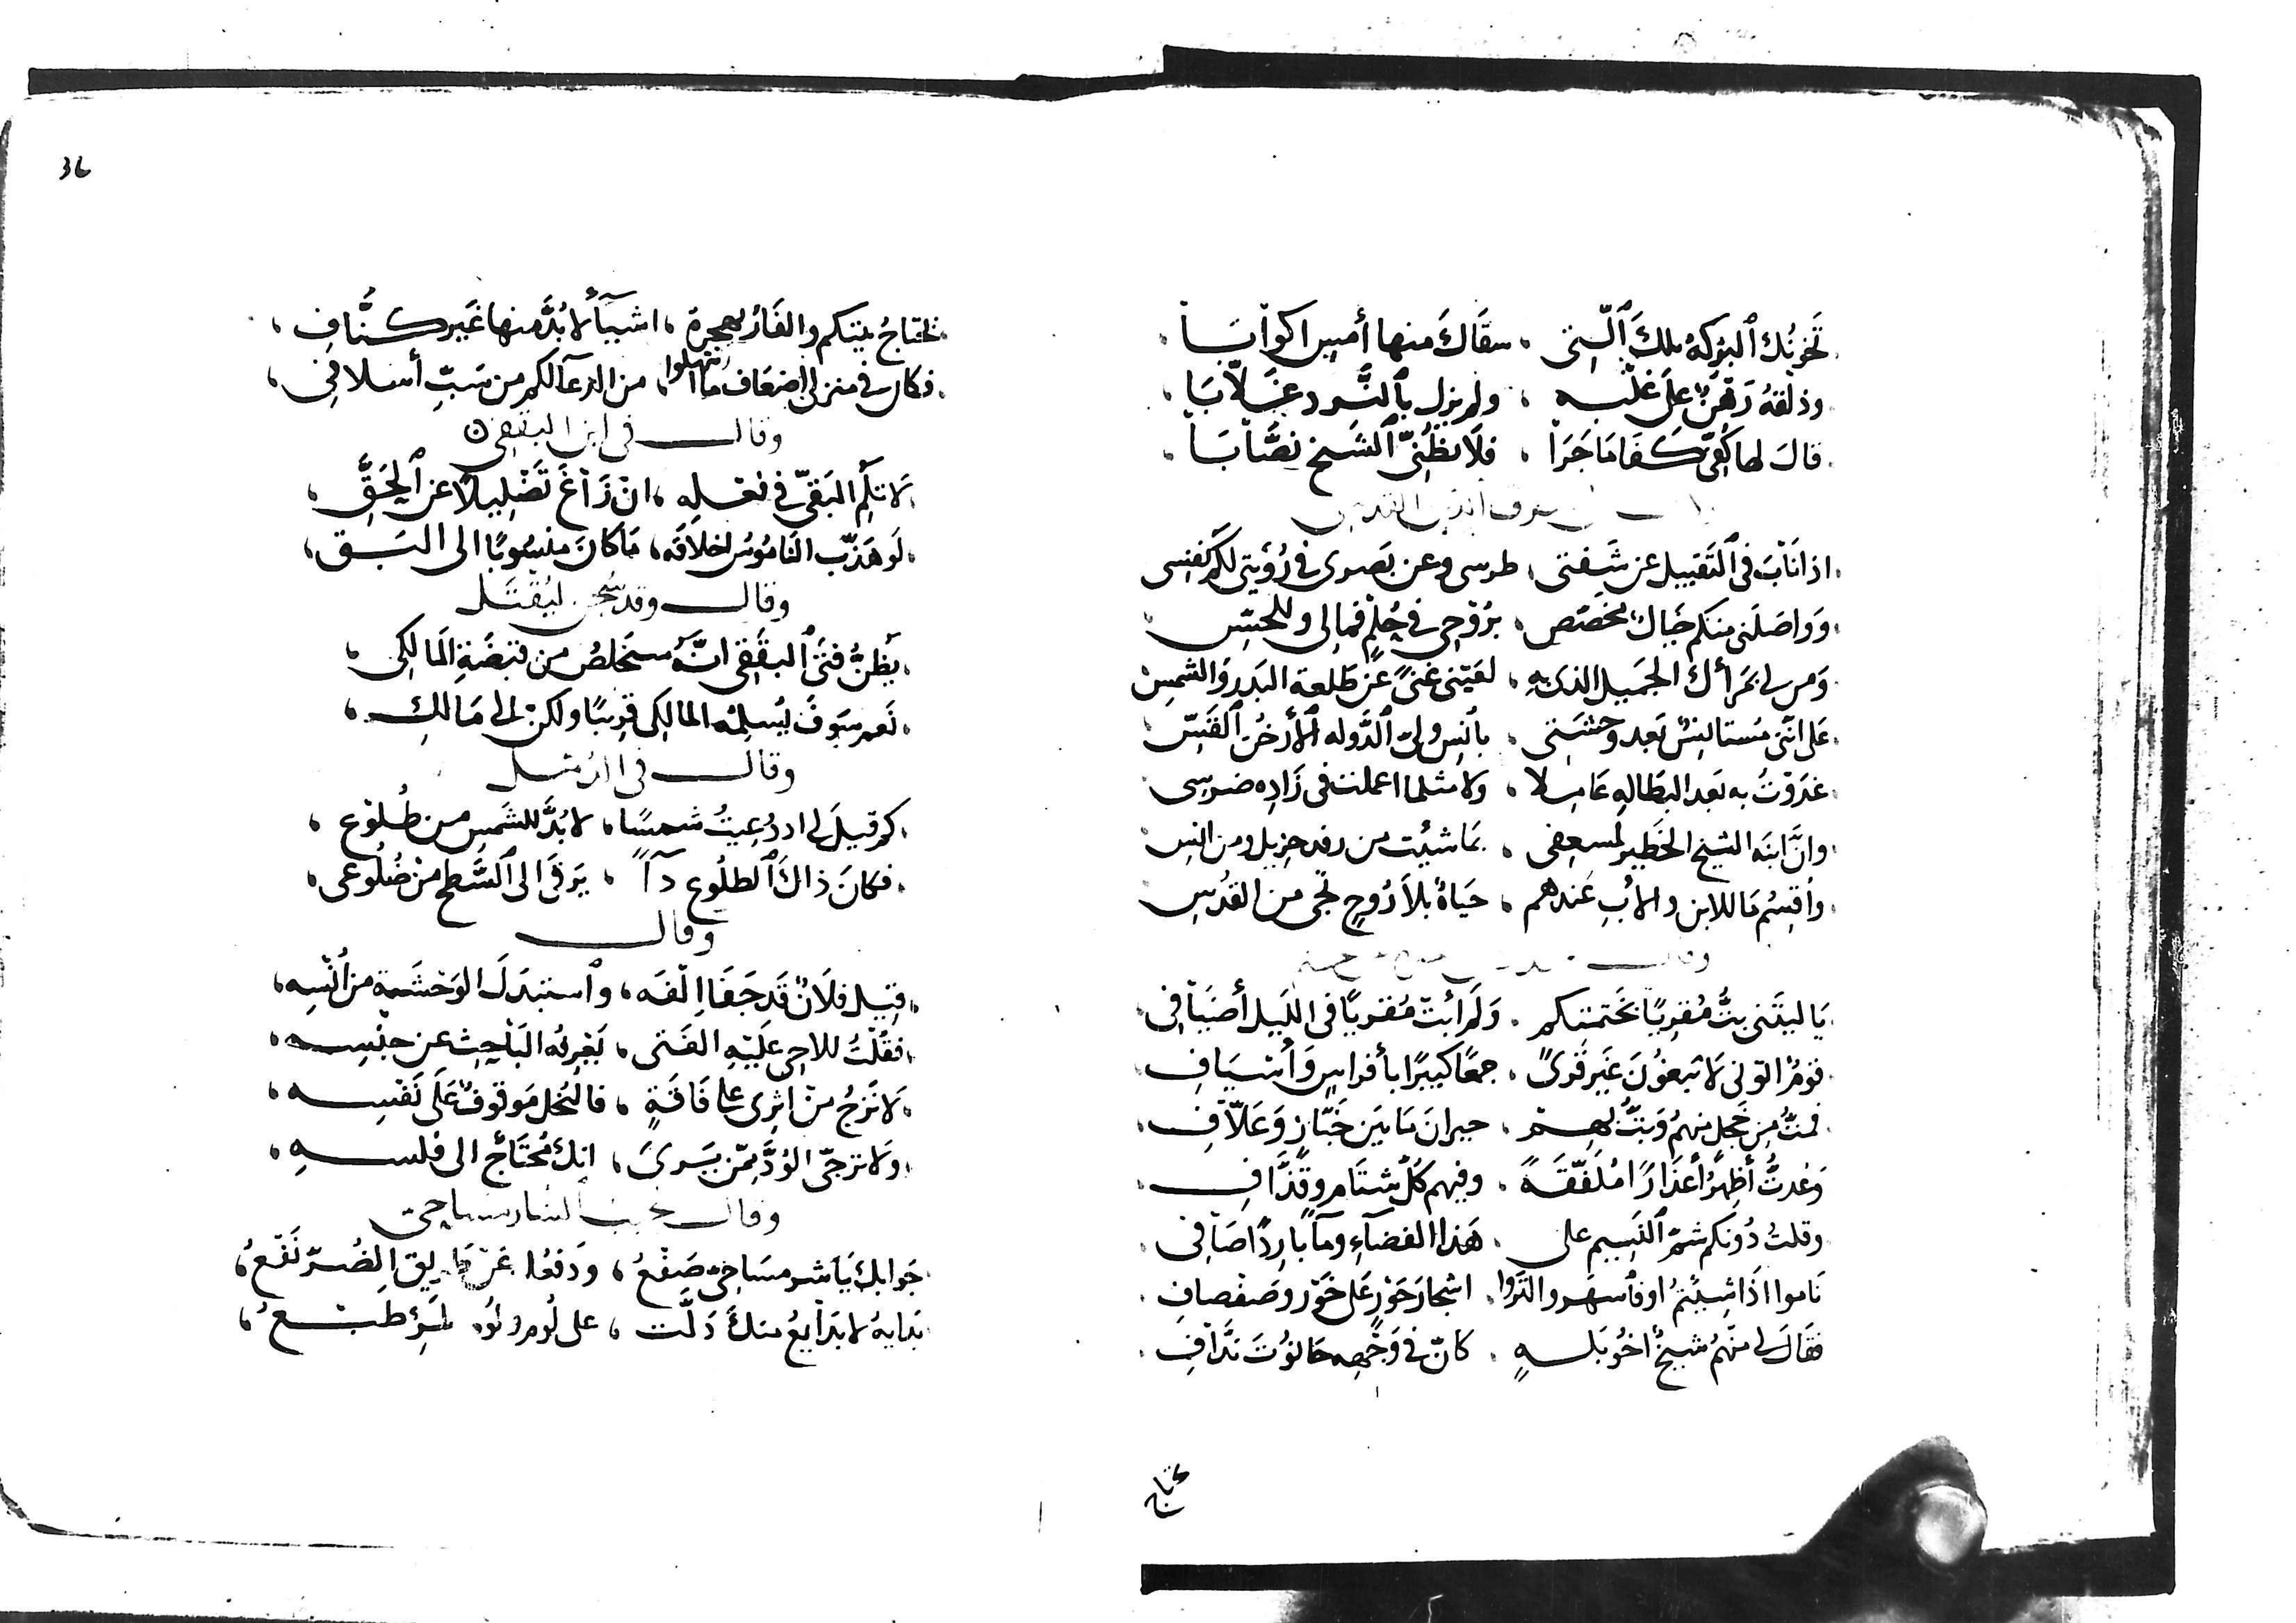 سقاك منها أمس اكوابا
ولم يزل بالنرد غلابا
قال لها كفى كفا ما جرا ، فلا تظنى الشيخ نصابا
اذا ناب فى التقبيل عن شفتى ، طرسى وعن بصرى فى رؤيتى لكم نفسى
وواصلنى منكم خيال مخصص ، بروحى فى حلم فمالى وللحس
ومن لى بمرأك الجميل الذى به ، لقيتنى غنى عن طلعة البدر والشمس
على اننى مستانس بعد وحشتى ، بانس ولى الدوله الأرخن القس
غدوت به بعد البطاله عاملا ، ولا مثلما اعملت فى زاده ضرسى
وان ابنه الشيخ الخطير لمسعفى ، بما شيت من رفد جزيل ومن انس
واقسم ما للابن والاب عندهم ، حياة بلا روح تجى من القدس
يا ليتنى بت مقريا بختمتكم ، ولم أبت مقريا فى الليل أضيافى
قوم اتونى لا يبغون غير قرى ، جمعا كبيرا بأفراس وأسياف
فمت من خجل منهم وبت بهم ، حيران ما بين خباز وعلاف
وعدت أظهر أعذارا ملفقة ، وفيهم كل شتام وقذاف
وقلت دونكم شم النسيم على ، هذا الفضاء وماء باردا صافى
ناموا اذا شيتم او فاسهروا اشجار حور على خور وصفصاف
فقال لى منهم شيخ أخو بله ، كان فى وجهه حانوت نداف
تحتاج
36
تحتاج بيتكم والفار يهجره ، اشياء لا بد منها غير كناف
فكان فى منزلى اضعاف ما انتهلوا ، من الدعا لكم من سب أسلافى
وقال فى ابن البققى
لا تلم البقى فى فعله ، ان زاغ تضليلا عن الحق
لو هذب الناموس اخلاقه ، ما كان منسوبا الى البق
وقال وقد سجن ليقتل
يظن فتى البققى انه سيخلص من قبضة المالكى
نعم سوف يسلمه المالكى قريبا ولكن الى مالك
وقال فى الدمل
كم قيل لى اذ دعيت شمسا ، لا بد للشمس من طلوع
فكان ذاك الطلوع داء ، يرقى الى السطح من ضلوعى
وقال
قيل فلان قد جفا الفه ، واستبدل الوحشة من أنسه
فقلت للاحى عليه الفتى ، يغريه الباحث عن جنسه
لا ترج من اثرى على فاقة ، فالبخل موقوف على نفسه
ولا ترجى الود ممن يرى ، انك محتاج الى فلسه
وقال
جوابك يا صفع ، ودفعك عن الضر نفع
بدايه لا بدايع منك دلت ، على لوم طبع